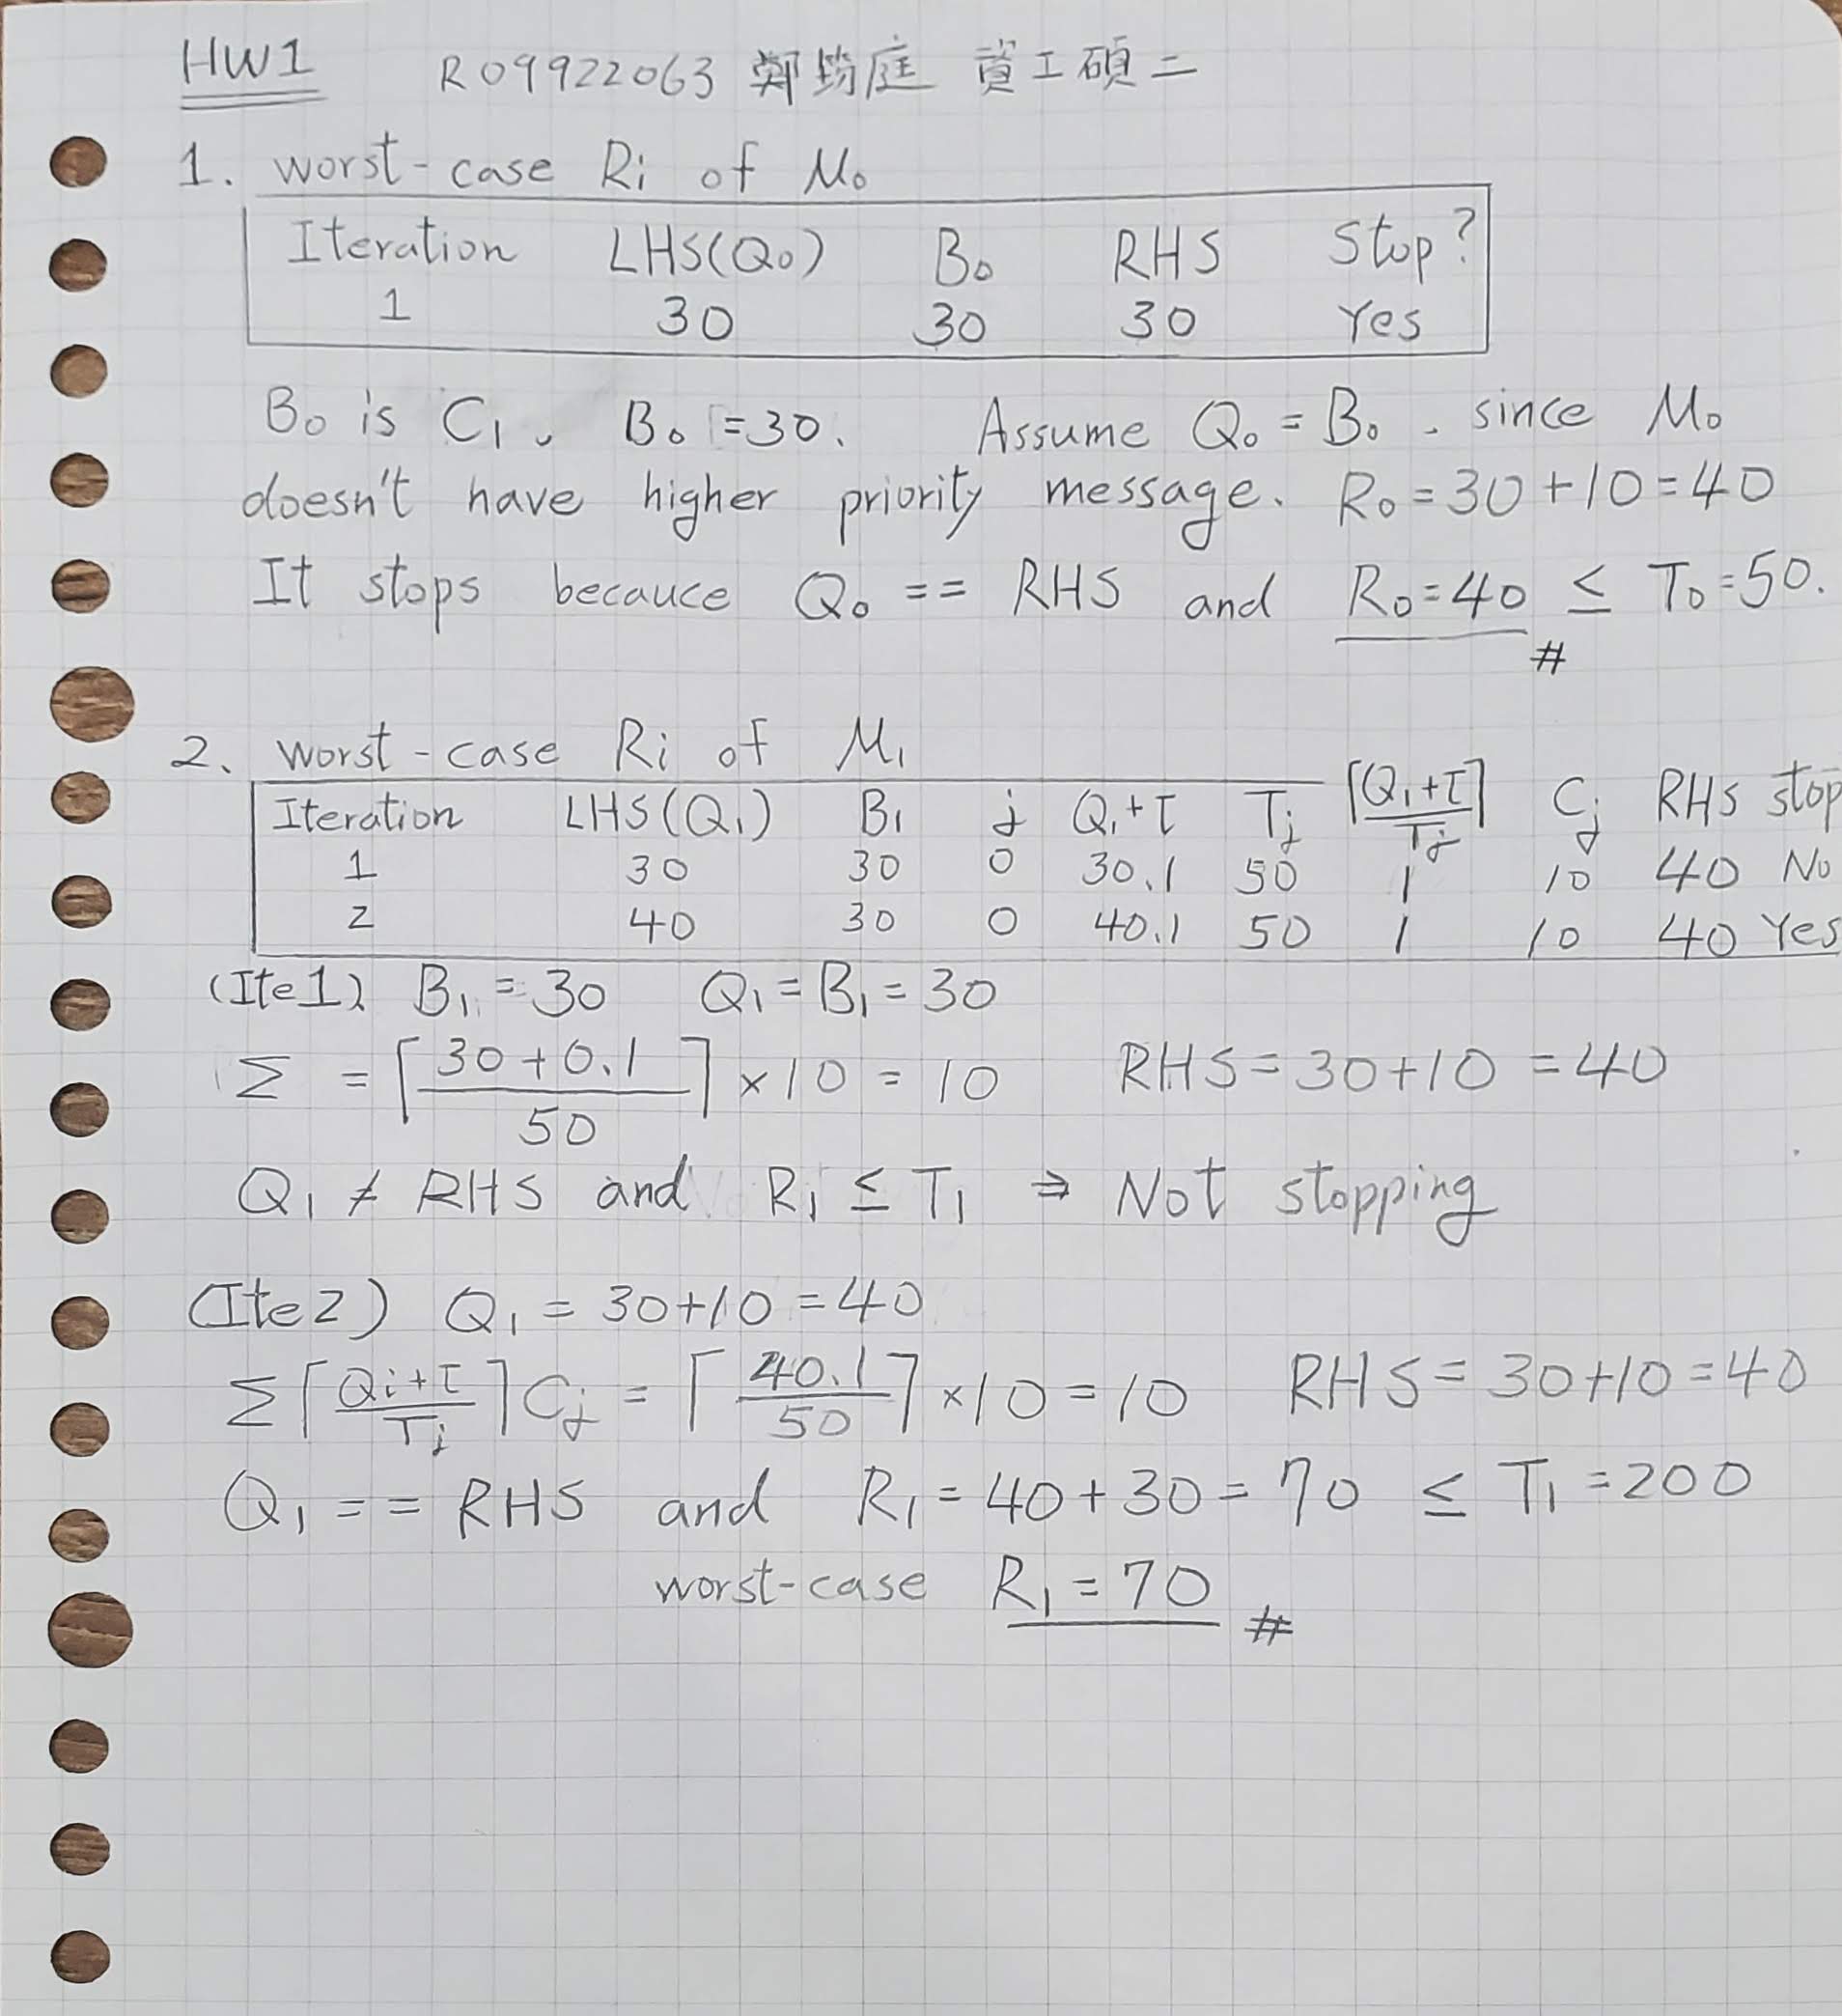 HW1 R09922063 鄭筠庭 資工碩二
1. worst-case Ri of M₀
Iteration LHS(Q₀) B₀ RHS Stop?
1 30 30 30 Yes
B₀ is C₁. B₀ = 30. Assume Q₀ = B₀. since M₀
doesn't have higher priority message. R₀ = 30 + 10 = 40
It stops becauce Q₀ == RHS and R₀ = 40 ≤ T₀ = 50.
#
2. worst-case Ri of M₁
Iteration LHS(Q₁) B₁ j Q₁+τ Tj ⌈(Q₁+τ)/Tj⌉ Cj RHS stop
1 30 30 0 30.1 50 1 10 40 No
2 40 30 0 40.1 50 1 10 40 Yes
(Ite1) B₁ = 30 Q₁ = B₁ = 30
Σ = ⌈(30+0.1)/50⌉ × 10 = 10 RHS = 30+10 = 40
Q₁ ≠ RHS and R₁ ≤ T₁ ⇒ Not stopping
(Ite2) Q₁ = 30+10 = 40
Σ⌈(Qi+τ)/Tj⌉Cj = ⌈40.1/50⌉ × 10 = 10 RHS = 30+10 = 40
Q₁ == RHS and R₁ = 40+30 = 70 ≤ T₁ = 200
worst-case R₁ = 70 #